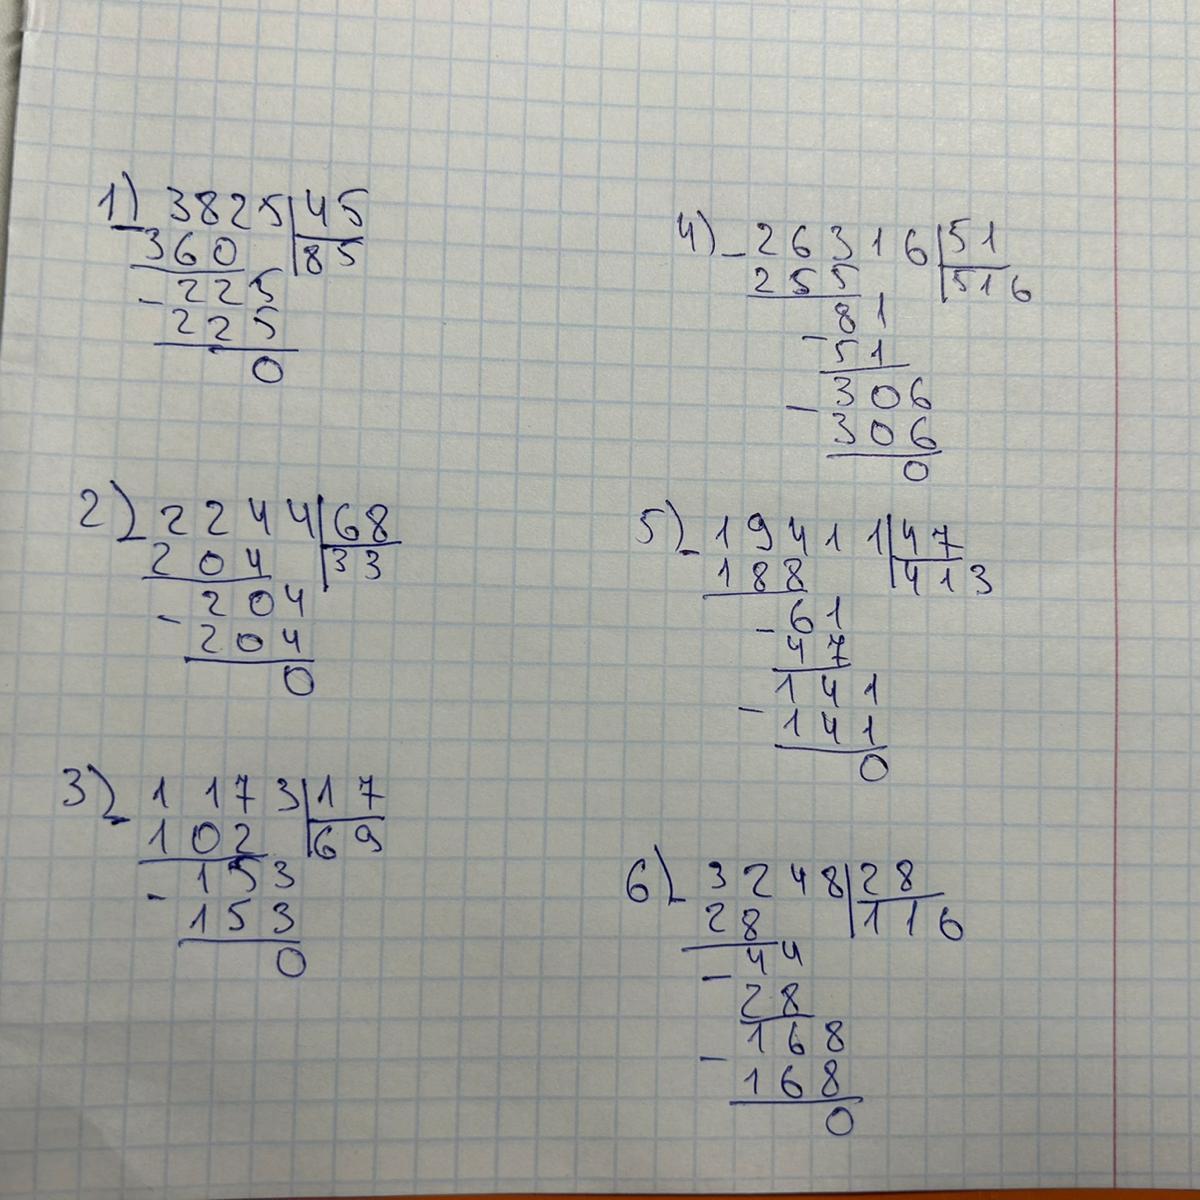 1) - 3825 | 45
360 | 85
- 225
225
0
2) - 2244 | 68
204 | 33
- 204
204
0
3) - 1173 | 17
102 | 69
- 153
153
0
4) - 26316 | 51
255 | 516
- 81
51
- 306
306
0
5) - 19411 | 47
188 | 413
- 61
47
- 141
141
0
6) - 3248 | 28
28 | 116
- 44
28
- 168
168
0